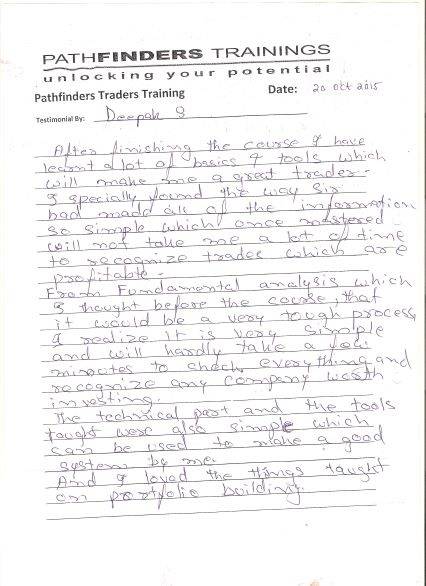 PATHFINDERS TRAININGS
unlocking your potential
Pathfinders Traders Training
Date: 20 Oct 2015
Testimonial By: Deepak S
After finishing the course I have
learnt a lot of basics & tools which
will make me a great trader.
I specially found the way Sir
had made all of the information
so simple which once mastered
will not take me a lot of time
to recognize trades which are
profitable.
From Fundamental analysis which
I thought before the course, that
it would be a very tough process
I realize it is very simple
and will hardly take a few
minutes to check everything and
recognize any company worth
investing.
The technical part and the tools
taught were also simple which
can be used to make a good
system by me.
And I loved the things taught
on portfolio building.